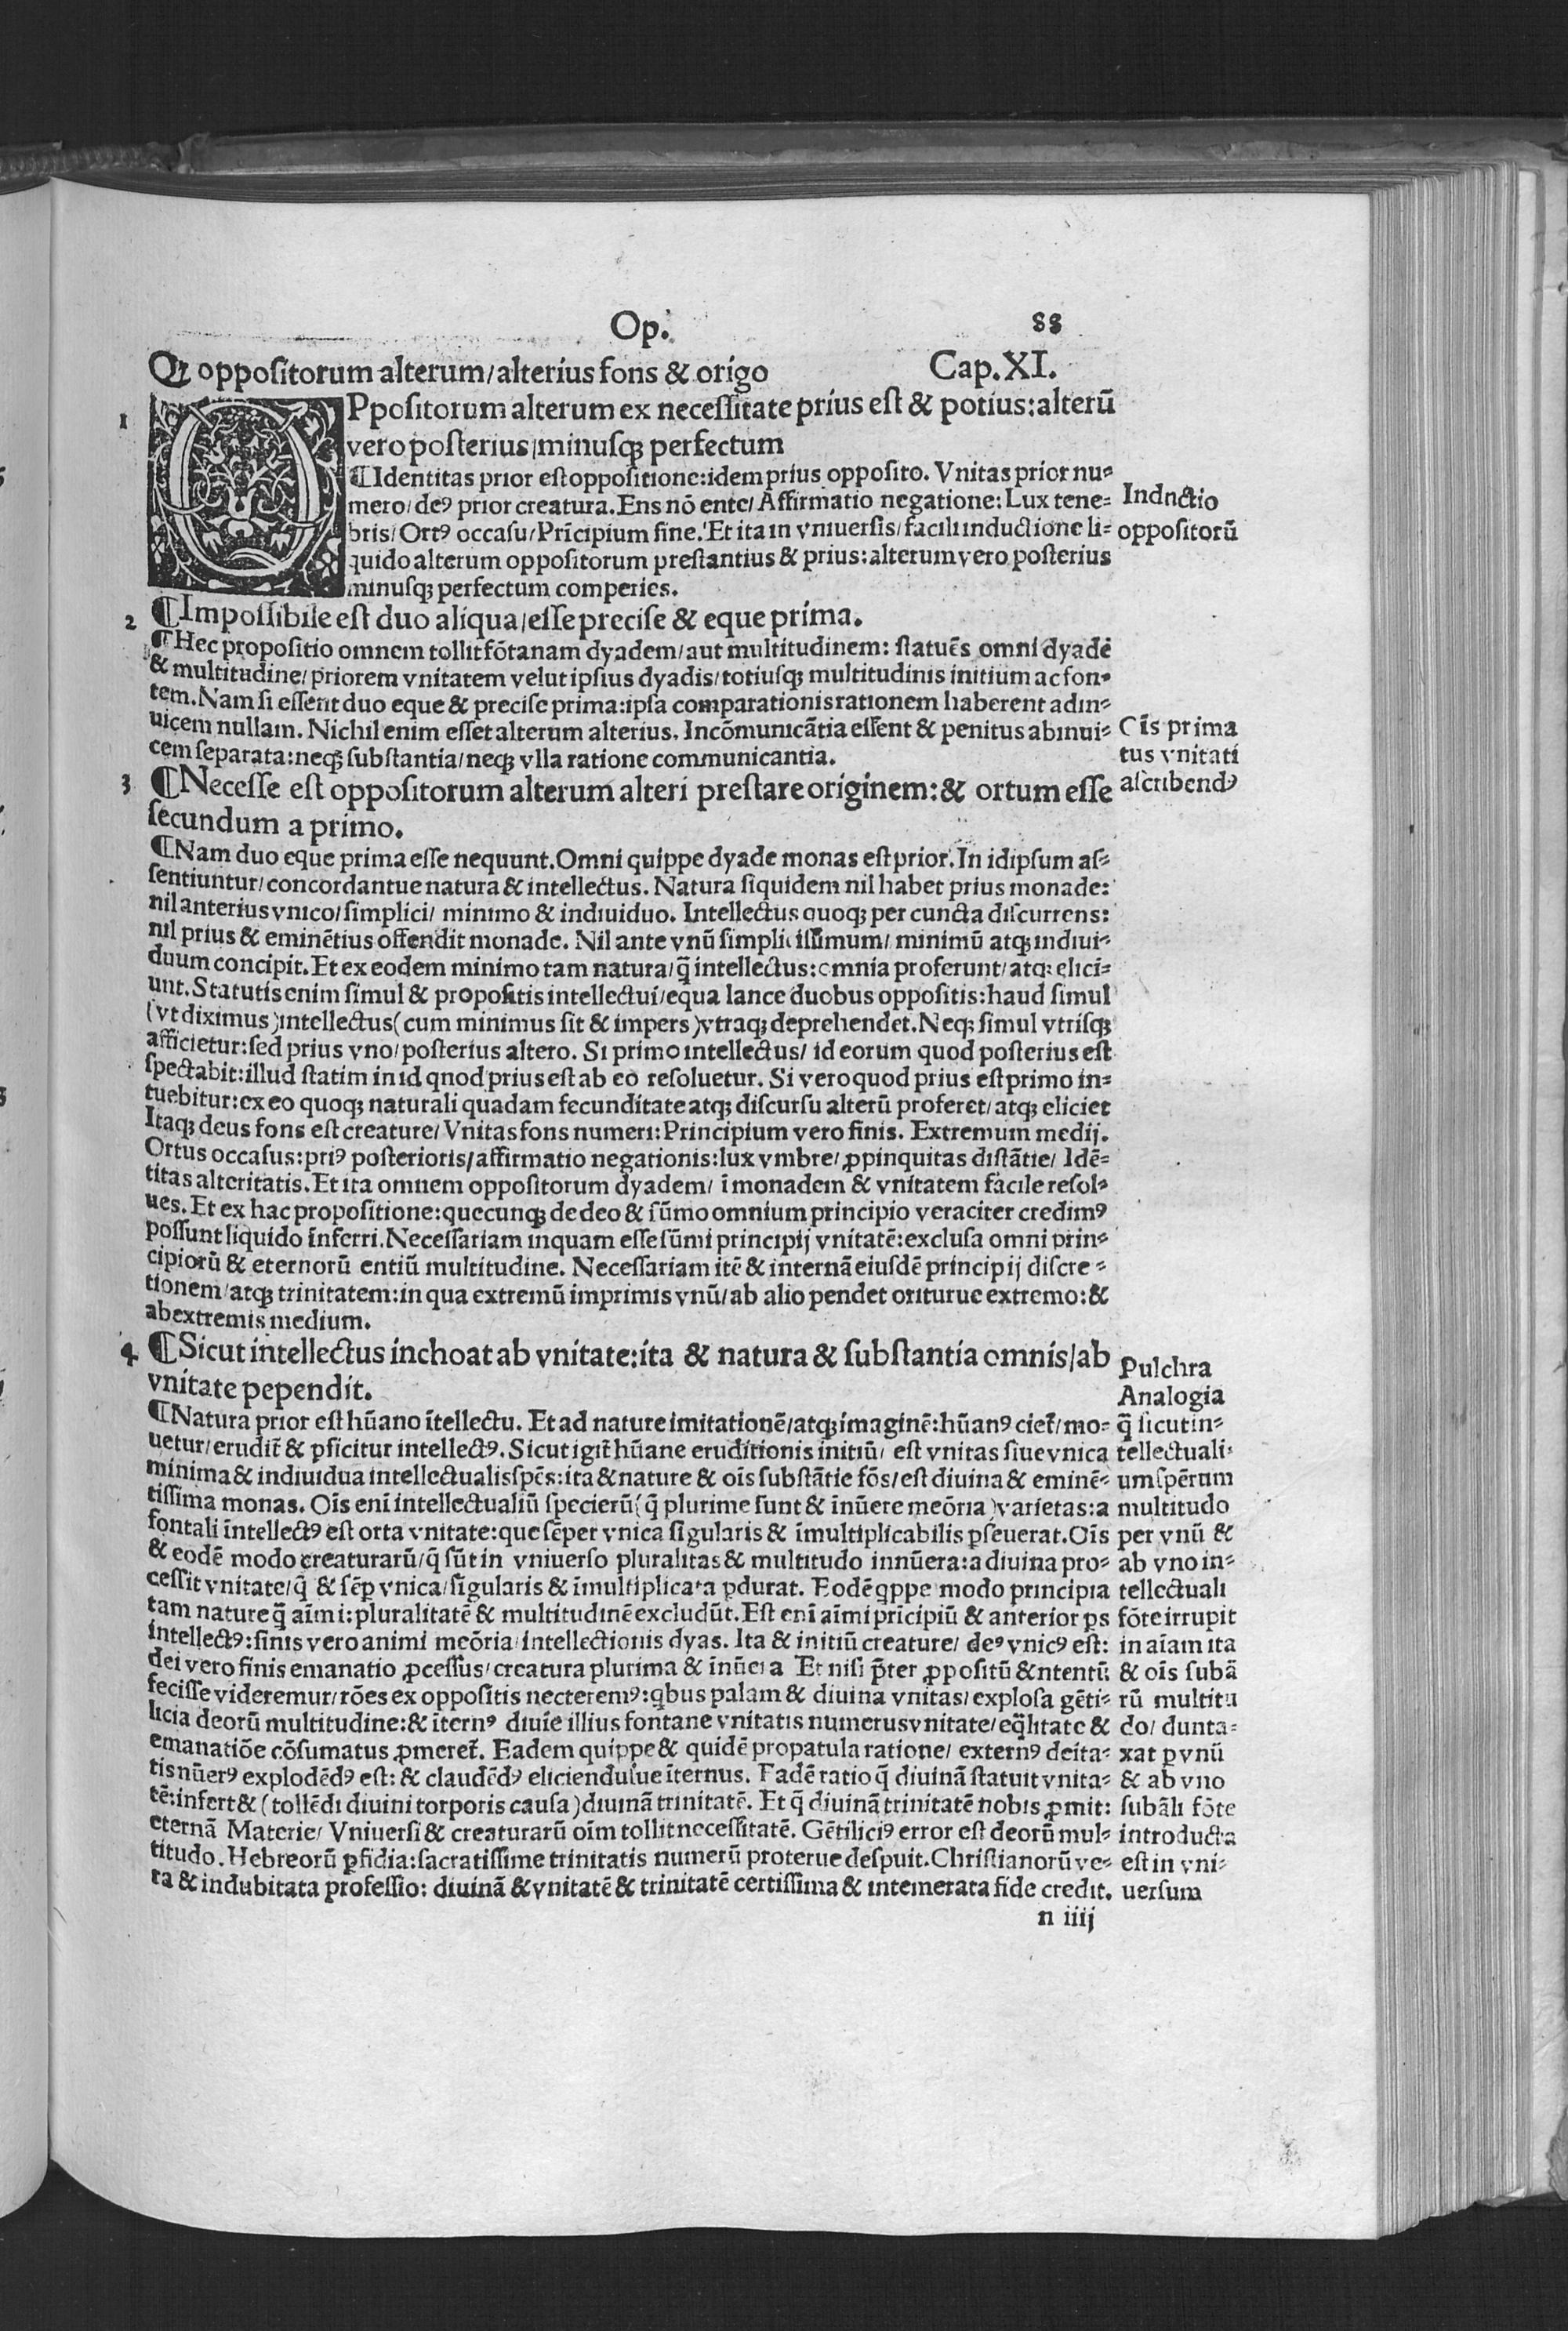 Op.
88
Qꝫ oppositorum alterum/alterius fons & origo
Cap.XI.
1
OPpositorum alterum ex necessitate prius est & potius:alterū
vero posterius/minusqꝫ perfectum
¶Identitas prior est oppositione:idem prius opposito. Vnitas prior nu-
mero/deꝰ prior creatura. Ens nō ente/Affirmatio negatione: Lux tene-
bris/Ortꝰ occasu/Prīcipium fine. Et ita in vniuersis/facili inductione li-
quido alterum oppositorum prestantius & prius:alterum vero posterius
minusqꝫ perfectum comperies.
Indnctio
oppositorū
2
¶Impossibile est duo aliqua/esse precise & eque prima.
¶Hec propositio omnem tollit fōtanam dyadem/aut multitudinem: statuēs omni dyadē
& multitudine/priorem vnitatem velut ipsius dyadis/totiusqꝫ multitudinis initium ac fon-
tem. Nam si essent duo eque & precise prima:ipsa comparationis rationem haberent adin-
uicem nullam. Nichil enim esset alterum alterius. Incōmunicātia essent & penitus abinui-
cem separata:neqꝫ substantia/neqꝫ vlla ratione communicantia.
Cīs prima
tus vnitati
ascribendꝰ
3
¶Necesse est oppositorum alterum alteri prestare originem:& ortum esse
secundum a primo.
¶Nam duo eque prima esse nequunt. Omni quippe dyade monas est prior. In idipsum as-
sentiuntur/concordantue natura & intellectus. Natura siquidem nil habet prius monade:
nil anterius vnico/simplici/ minimo & indiuiduo. Intellectus quoqꝫ per cuncta discurrens:
nil prius & eminētius offendit monade. Nil ante vnū simplicissimum/ minimū atqꝫ indiui-
duum concipit. Et ex eodem minimo tam natura/q̄ intellectus:omnia proferunt/atqꝫ elici-
unt. Statutis enim simul & propositis intellectui/equa lance duobus oppositis:haud simul
(vt diximus)intellectus(cum minimus sit & impers)vtraqꝫ deprehendet. Neqꝫ simul vtrisqꝫ
afficietur:sed prius vno/posterius altero. Si primo intellectus/ id eorum quod posterius est
spectabit:illud statim in id qnod prius est ab eo resoluetur. Si vero quod prius est primo in-
tuebitur:ex eo quoqꝫ naturali quadam fecunditate atqꝫ discursu alterū proferet/atqꝫ eliciet
Itaqꝫ deus fons est creature/ Vnitas fons numeri:Principium vero finis. Extremum medij.
Ortus occasus:priꝰ posterioris/affirmatio negationis:lux vmbre/ꝓpinquitas distātie/ Idē-
titas alteritatis. Et ita omnem oppositorum dyadem/ ī monadem & vnitatem facile resol-
ues. Et ex hac propositione:quecunqꝫ de deo & sūmo omnium principio veraciter credimꝰ
possunt liquido īnferri. Necessariam inquam esse sūmi principij vnitatē:exclusa omni prin-
cipiorū & eternorū entiū multitudine. Necessariam itē & internā eiusdē principij discre-
tionem/atqꝫ trinitatem:in qua extremū imprimis vnū/ab alio pendet oriturue extremo:&
ab extremis medium.
4
¶Sicut intellectus inchoat ab vnitate:ita & natura & substantia omnis/ab
vnitate pependit.
¶Natura prior est hūano ītellectu. Et ad nature imitationē/atqꝫ imaginē:hūanꝰ ciet̄/mo-
uetur/erudit̄ & ꝑficitur intellectꝰ. Sicut igit̄ hūane eruditionis initiū/ est vnitas siue vnica
minima & indiuidua intellectualis spēs:ita & nature & oīs substātie fōs/est diuina & eminē-
tissima monas. Oīs enī intellectualiū specierū(q̄ plurime sunt & īnūere meōria)varietas:a
fontali īntellectꝰ est orta vnitate:que sēper vnica sīgularis & īmultiplicabilis ꝑseuerat. Oīs
& eodē modo creaturarū/q̄ sūt in vniuerso pluralitas & multitudo innūera:a diuina pro-
cessit vnitate/q̄ & sēꝑ vnica/sīgularis & īmultiplicata ꝑdurat. Eodē q̣ppe modo principia
tam nature q̄ aīmi:pluralitatē & multitudinē excludūt. Est enī aīmi prīcipiū & anterior ꝑs
intellectꝰ:finis vero animi meōria/intellectionis dyas. Ita & initiū creature/ deꝰ vnicꝰ est:
dei vero finis emanatio ꝓcessus/creatura plurima & īnūera Et nisi p̄ter ꝓpositū & ntentū
fecisse videremur/rōes ex oppositis necteremꝰ:q̣bus palam & diuina vnitas/explosa gēti-
licia deorū multitudine:& īternꝰ diuīe illius fontane vnitatis numerus vnitate/eq̄litate &
emanatiōe cōsumatus ꝓmeret̄. Eadem quippe & quidē propatula ratione/ externꝰ deita-
tis nūerꝰ explodēdꝰ est: & claudēdꝰ eliciendusue īternus. Eadē ratio q̄ diuinā statuit vnita-
tē:infert &(tollēdi diuini torporis causa)diuinā trinitatē. Et q̄ diuinā trinitatē nobis ꝓmit:
eternā Materie/ Vniuersi & creaturarū oīm tollit necessitatē. Gētiliciꝰ error est deorū mul-
titudo. Hebreorū ꝑfidia:sacratissime trinitatis numerū proterue despuit. Christianorū ve-
ra & indubitata professio: diuinā & vnitatē & trinitatē certissima & intemerata fide credit.
Pulchra
Analogia
q̄ sicut in-
tellectuali-
um spērum
multitudo
per vnū &
ab vno in-
tellectuali
fōte irrupit
in aīam ita
& oīs subā
rū multitu
do/ dunta-
xat ꝑ vnū
& ab vno
subāli fōte
introducta
est in vni-
uersum
n iiij